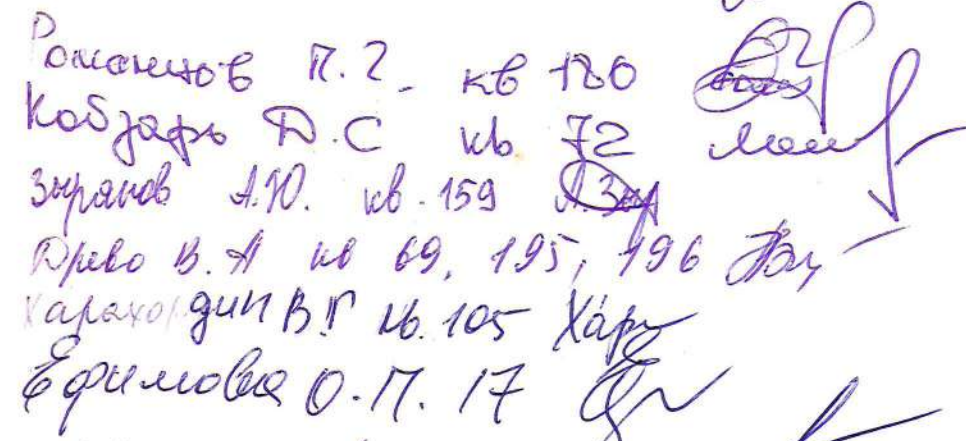 Романцов П.Г. кв 180
Кобзарь Д.С кв 72
Зырянов А.Ю. кв. 159
Древо В.А кв 69, 195, 196
Караходин В.Г кв. 105
Ефимова О.П. 17